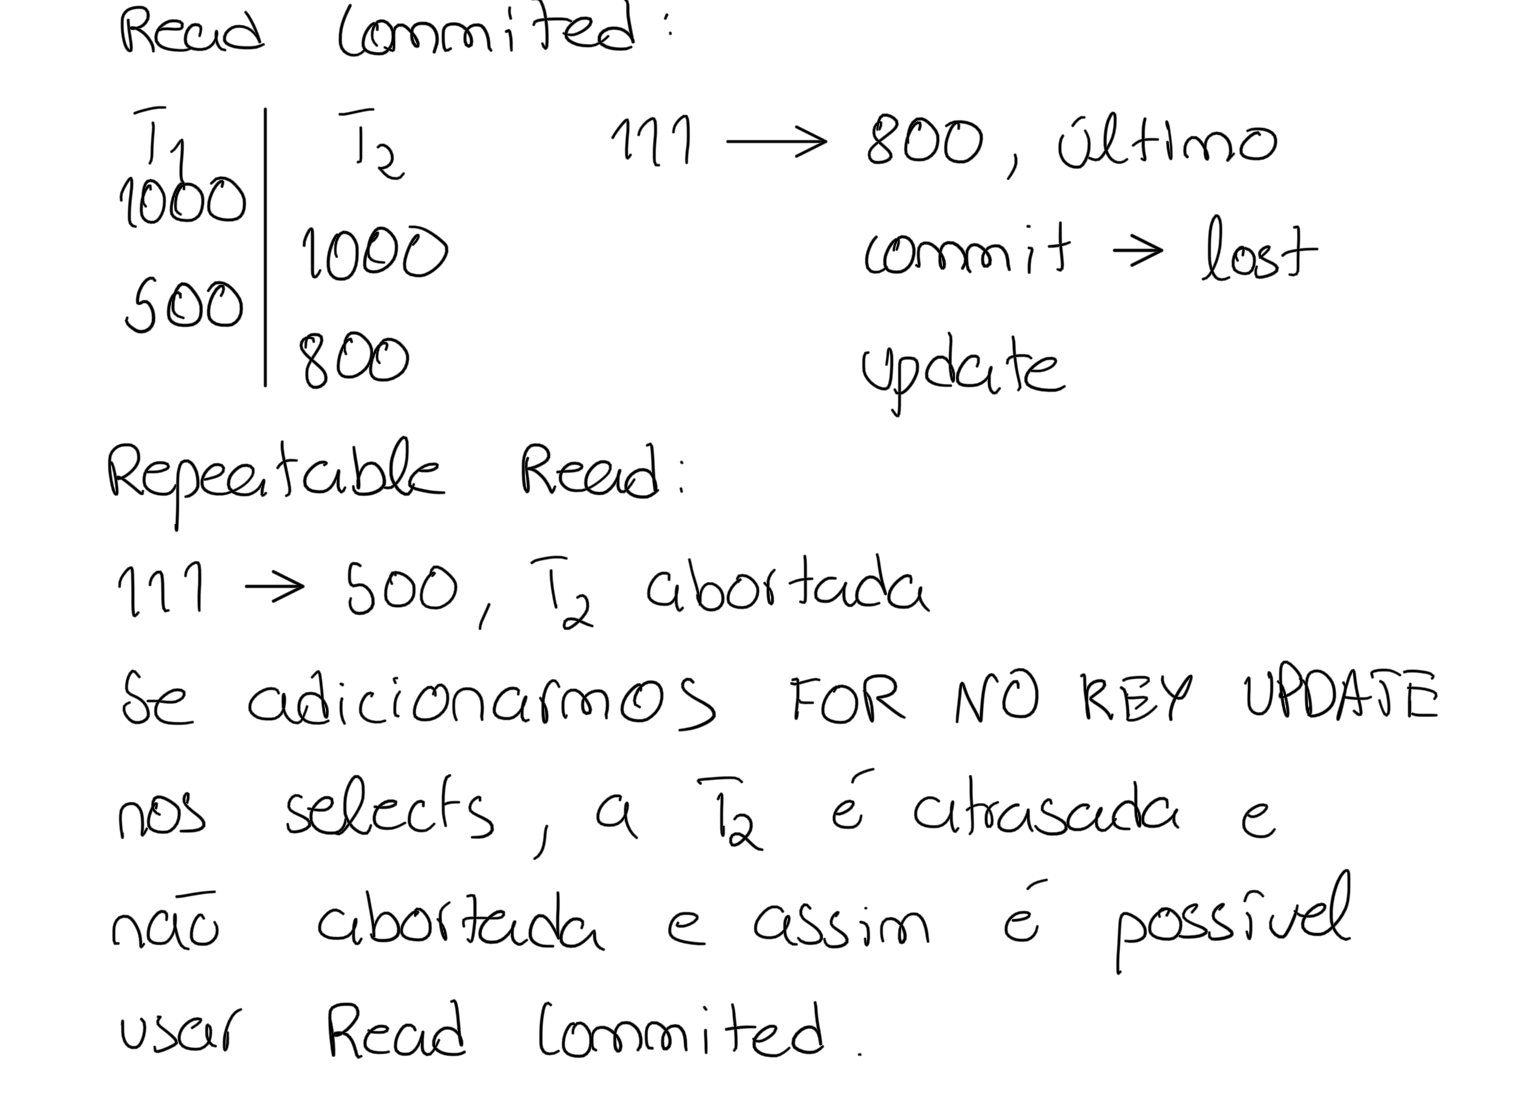 Read Commited:
T1 | T2 111 → 800, último
1000
1000 commit → lost
500
800 update
Repeatable Read:
111 → 500, T2 abortada
Se adicionarmos FOR NO KEY UPDATE
nos selects, a T2 é atrasada e
não abortada e assim é possível
usar Read Commited.